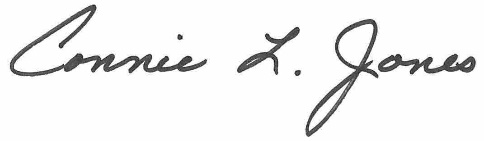 Connie L. Jones